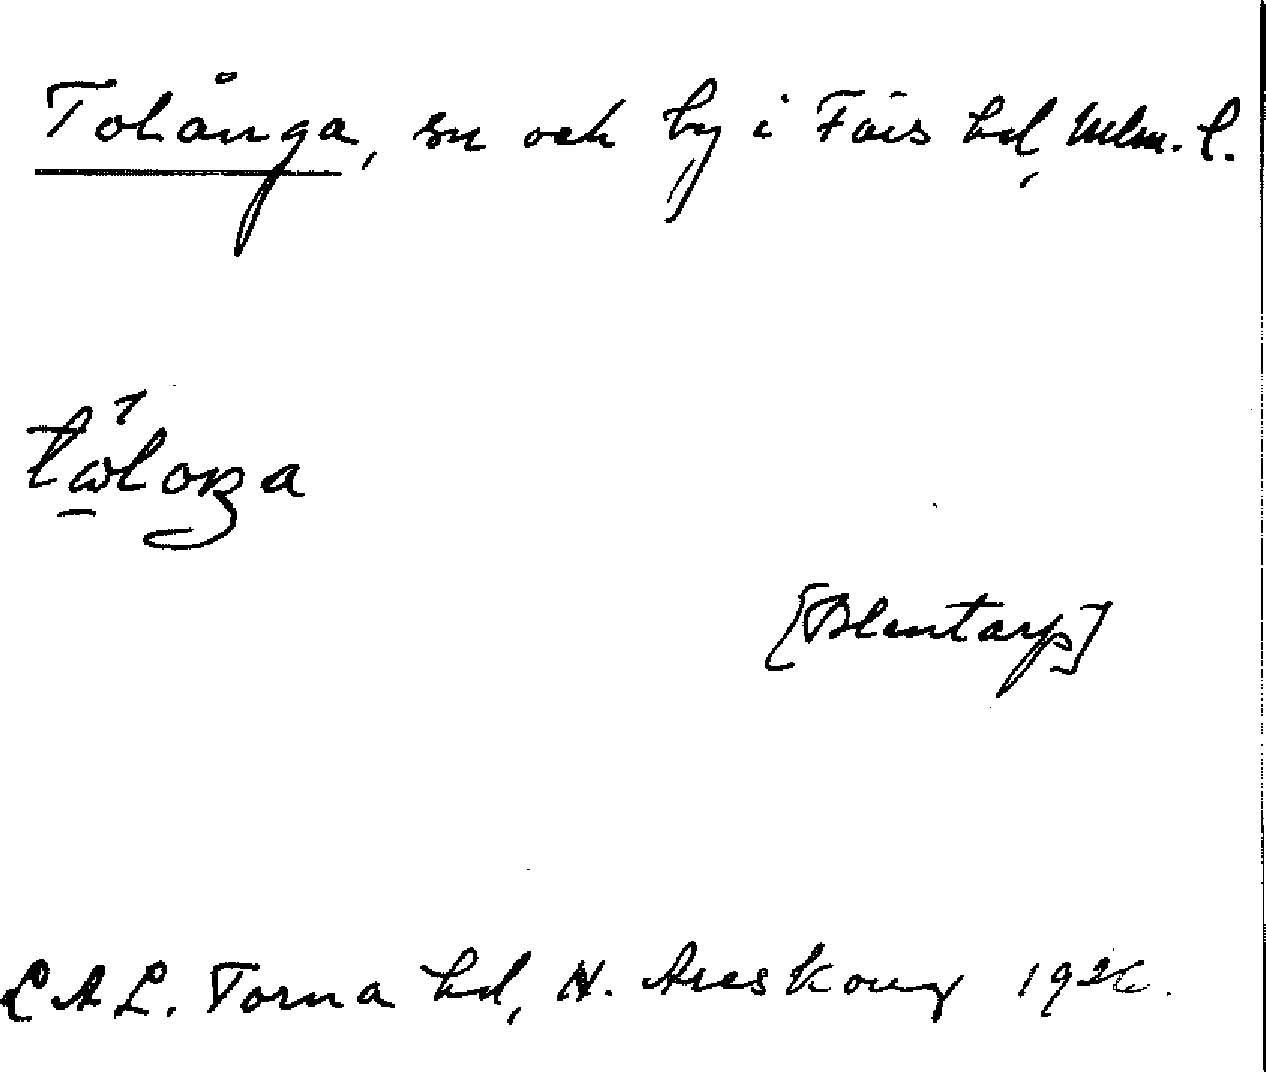 Tolånga, sn och by i Färs hd, Mlm. l.
[Blentarp]
LAL. Torna hd, N. Areskoug 192